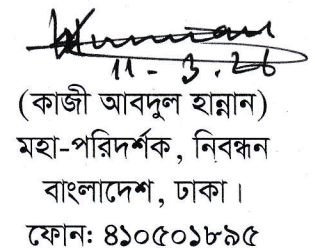 11-3.26
(কাজী আবদুল হান্নান)
মহা-পরিদর্শক, নিবন্ধন
বাংলাদেশ, ঢাকা।
ফোন: ৪১০৫০১৮৯৫